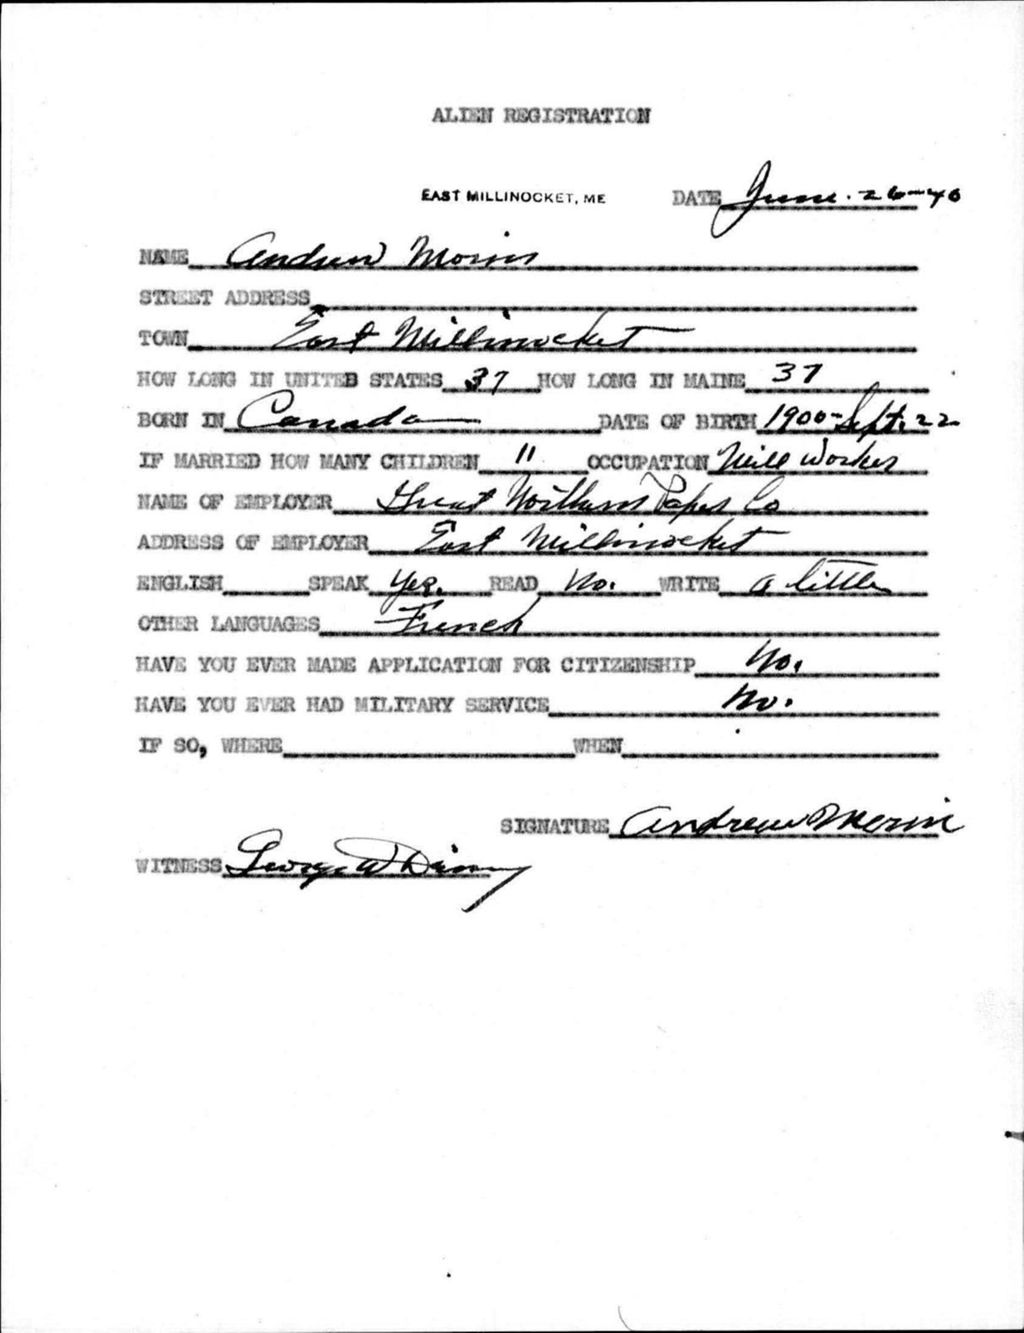 ALIEN REGISTRATION
EAST MILLINOCKET, ME DATE June. 26-40
NAME Andrew Morin
STREET ADDRESS
TOWN East Millinocket
HOW LONG IN UNITED STATES 37 HOW LONG IN MAINE 37
BORN IN Canada DATE OF BIRTH 1900-Sept. 22
IF MARRIED HOW MANY CHILDREN 11 OCCUPATION Mill Worker
NAME OF EMPLOYER Great Northern Paper Co
ADDRESS OF EMPLOYER East Millinocket
ENGLISH SPEAK Yes. READ No. WRITE a little
OTHER LANGUAGES French
HAVE YOU EVER MADE APPLICATION FOR CITIZENSHIP No.
HAVE YOU EVER HAD MILITARY SERVICE No.
IF SO, WHERE WHEN
SIGNATURE Andrew Morin
WITNESS George W